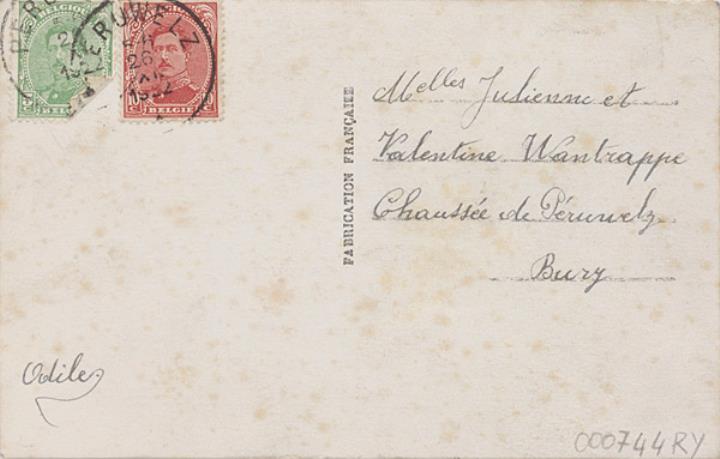 BELGIQUE
BELGIE
BELGIQUE
PERUWELZ
26
1922
BELGIE
FABRICATION FRANÇAISE
Melles Julienne et
Valentine Wantrappe
Chaussée de Péruwelz
Bury
Odile
000744RY